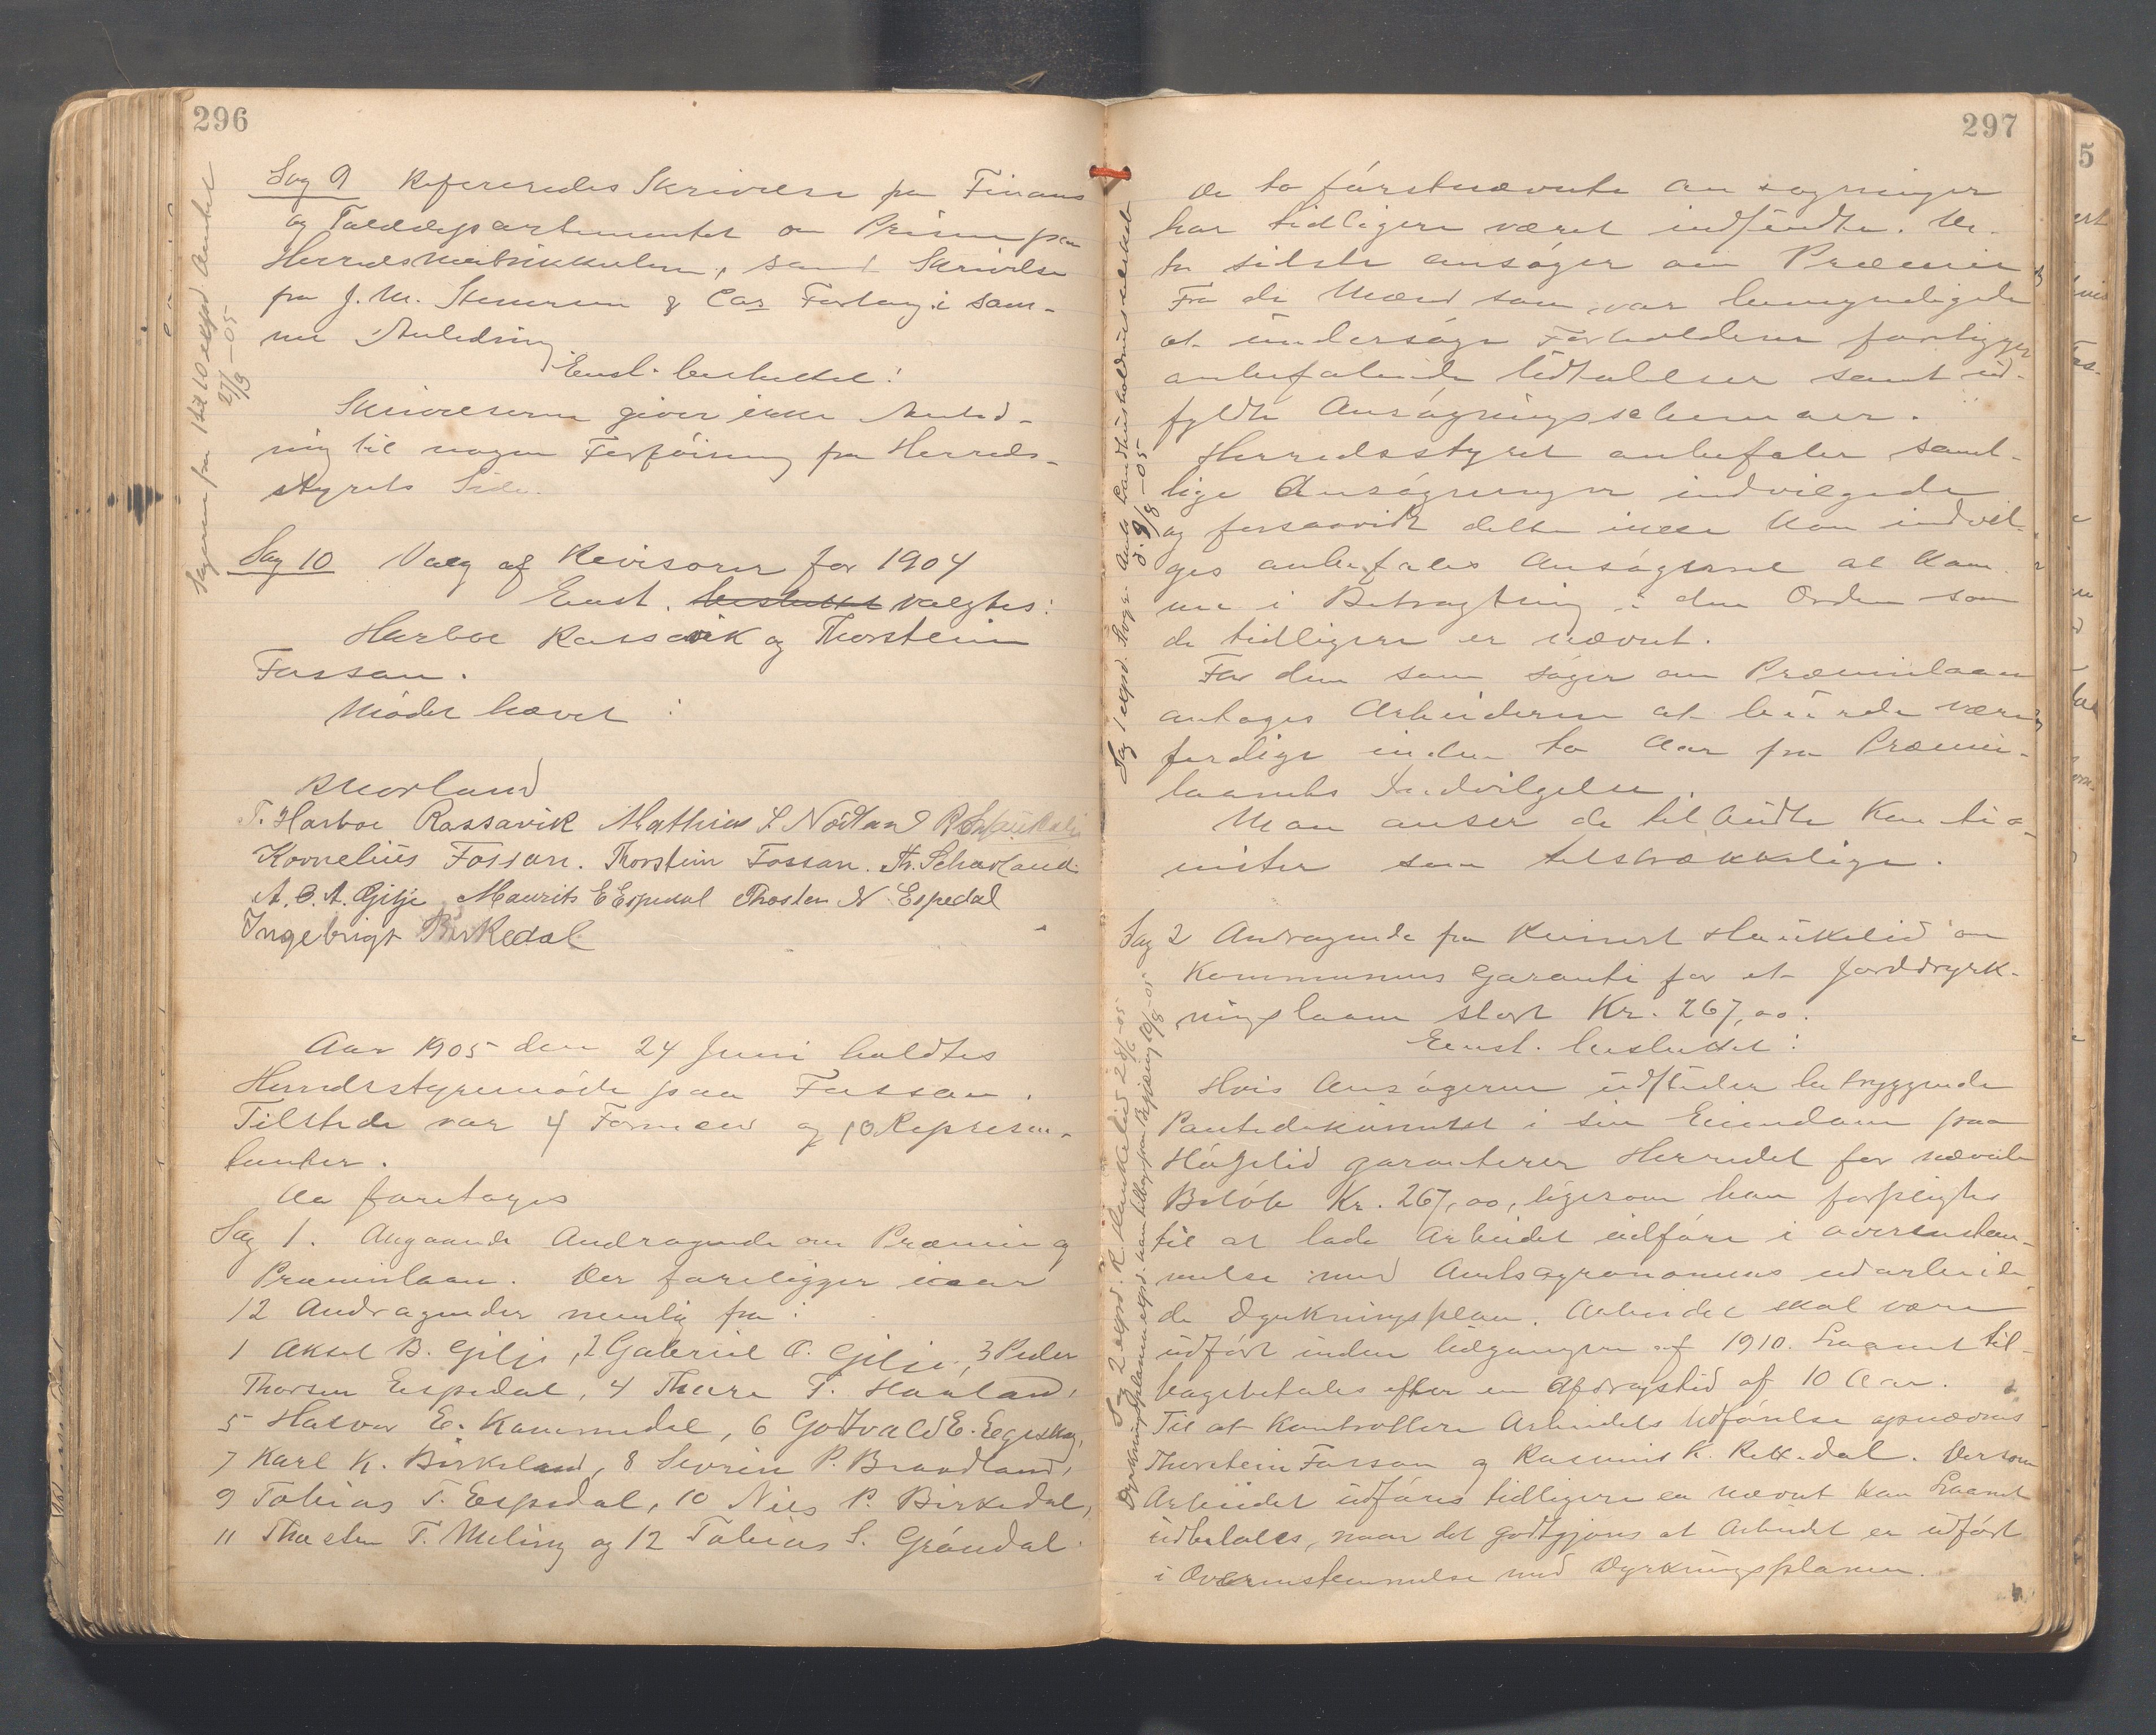 296
Sag 9 Refereredes Skrivelse fra Finans
og Tolddepartementet om Prisen paa
Herredsmatrikkulen, samt Skrivelse
fra J. M. Stenersen & Cos Forlag i sam-
me Anledning
Enst. besluttet:
Skrivelserne giver ikke Anled-
ning til nogen Forføining fra Herreds-
styrets Side.
Sag 10 Valg af Revisorer for 1904
Enst. besluttet valgtes:
Harboe Rassavik og Thorstein
Fossan.
Mødet hævet
T. Harboe Rassavik Mathias S. Nødland
Kornelius Fossan. Thorstein Fossan.
A. B. A. Gilje Maurits E Espedal Thosten N. Espedal
Ingebrigt Birkedal
Aar 1905 den 24 Juni holdtes
Herredstyremøde paa Fossan.
Tilstede var 4 Formænd og 10 Represen-
tanter.
Da foretoges
Sag 1. Angaaende Andragende om Præmie og
Præmielaan. Der foreligger iaar
12 Andragender nemlig fra:
1 Aksel B. Gilje, 2 Gabriel O. Gilje, 3 Peder
Thorsen Espedal, 4 Thore T. Haaland,
5 Halvor E. Kommedal, 6 Godtvald E. Eegeskog,
7 Karl K. Birkeland, 8 Sevrin P. Brandland,
9 Tobias T. Espedal, 10 Nils P. Birkedal,
11 Thosten T. Meling og 12 Tobias S. Grøndal.
Sagerne fra 1 til 10 exped. Amtet
27/3 – 05
297
De to førstnævnte ansøgninger
har tidligere været indsendte. De
to sidste ansøger om Præmie
Fra de Mænd som var bemyndigede
at undersøge Forholdene foreligger
anbefalende Udtalelser samt ud-
fyldte Ansøgningsschemaer.
Herredsstyret anbefaler samt-
lige Ansøgninger indvilgede
og forsaavidt dette ikke kan indvil-
ges anbefales Ansøgerne at kom-
me i Betragtning i den Orden som
de tidligere er nævnt.
For dem som søger om Præmielaan
antages Arbeiderne at burde være
ferdige inden to Aar fra Præmie-
laanets Indvilgelse.
Man anser de tilbudte Kautio-
nister som tilstrækkelige.
Sag 2 Andragende fra Reinert Haukelid om
Kommunens Garanti for et Jorddyrk-
ningslaan stort Kr. 267,00.
Enst. besluttet:
Hvis Ansøgeren udsteder betryggende
Pantedokument i sin Eiendom paa
Høgelid garanterer Herredet for nævnte
Beløb Kr. 267,00, ligesom han forpligtes
til at lade Arbeidet udføre i overenstem-
melse med Amtsagronomens udarbeide-
de Dyrkningsplan. Arbeidet skal være
udført inden Udgangen af 1910. Laanet til-
bagebetales efter en Afdragstid af 10 Aar.
Til at kontrollere Arbeidets Udførelse opnævnes
Thorstein Fossan og Rasmus K. Rettedal. Dersom
Arbeidet udføres tidligere en nævnt kan Laanet
udbetales, naar det godtgjøres at Arbeidet er udført
i Overenstemmelse med Dyrkningsplanen.
Sag 1 exped. Stvgr. Amts Landhusholdningsselskab
d. 9/8 – 05
Sag 2 exped. R. Haukelid 28/6 – 05
5